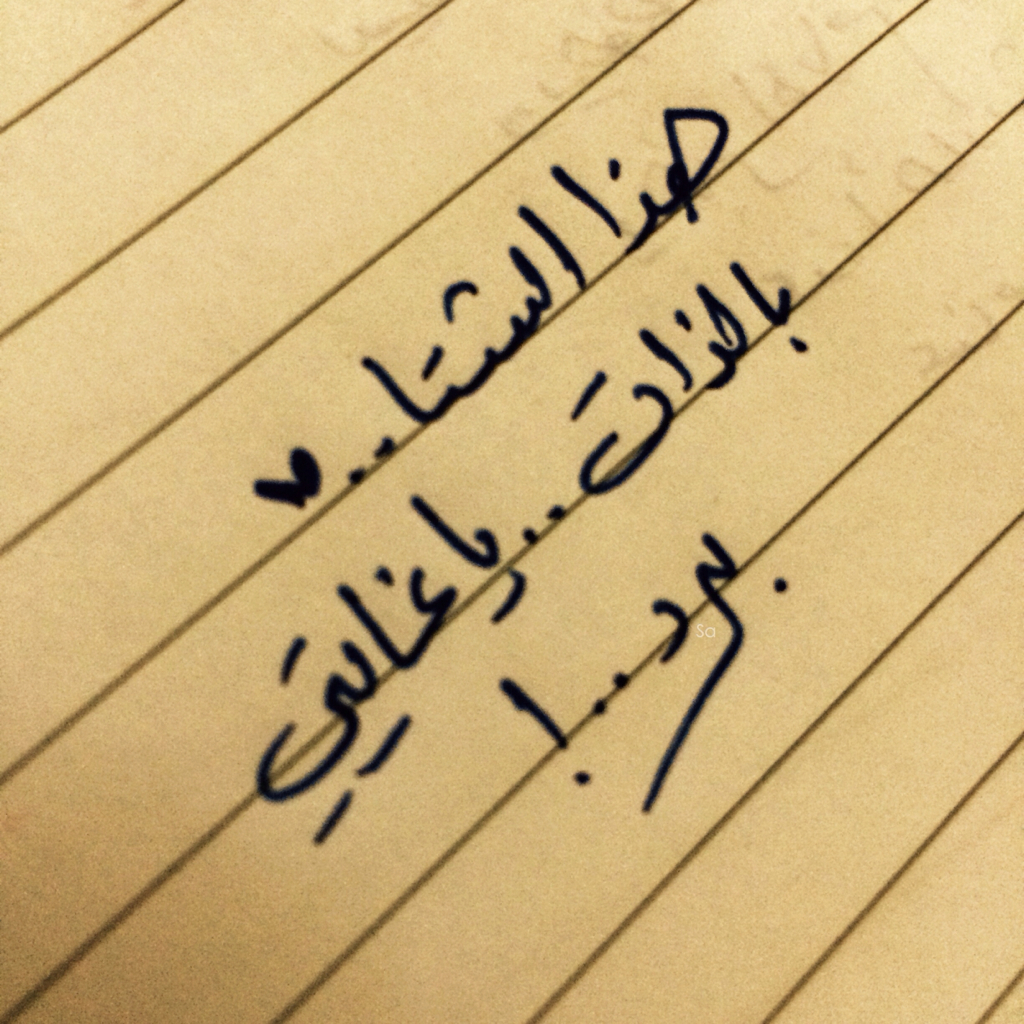 هذا الشتا..♥
بالذات.. يا غايتي
برد..!
Sa